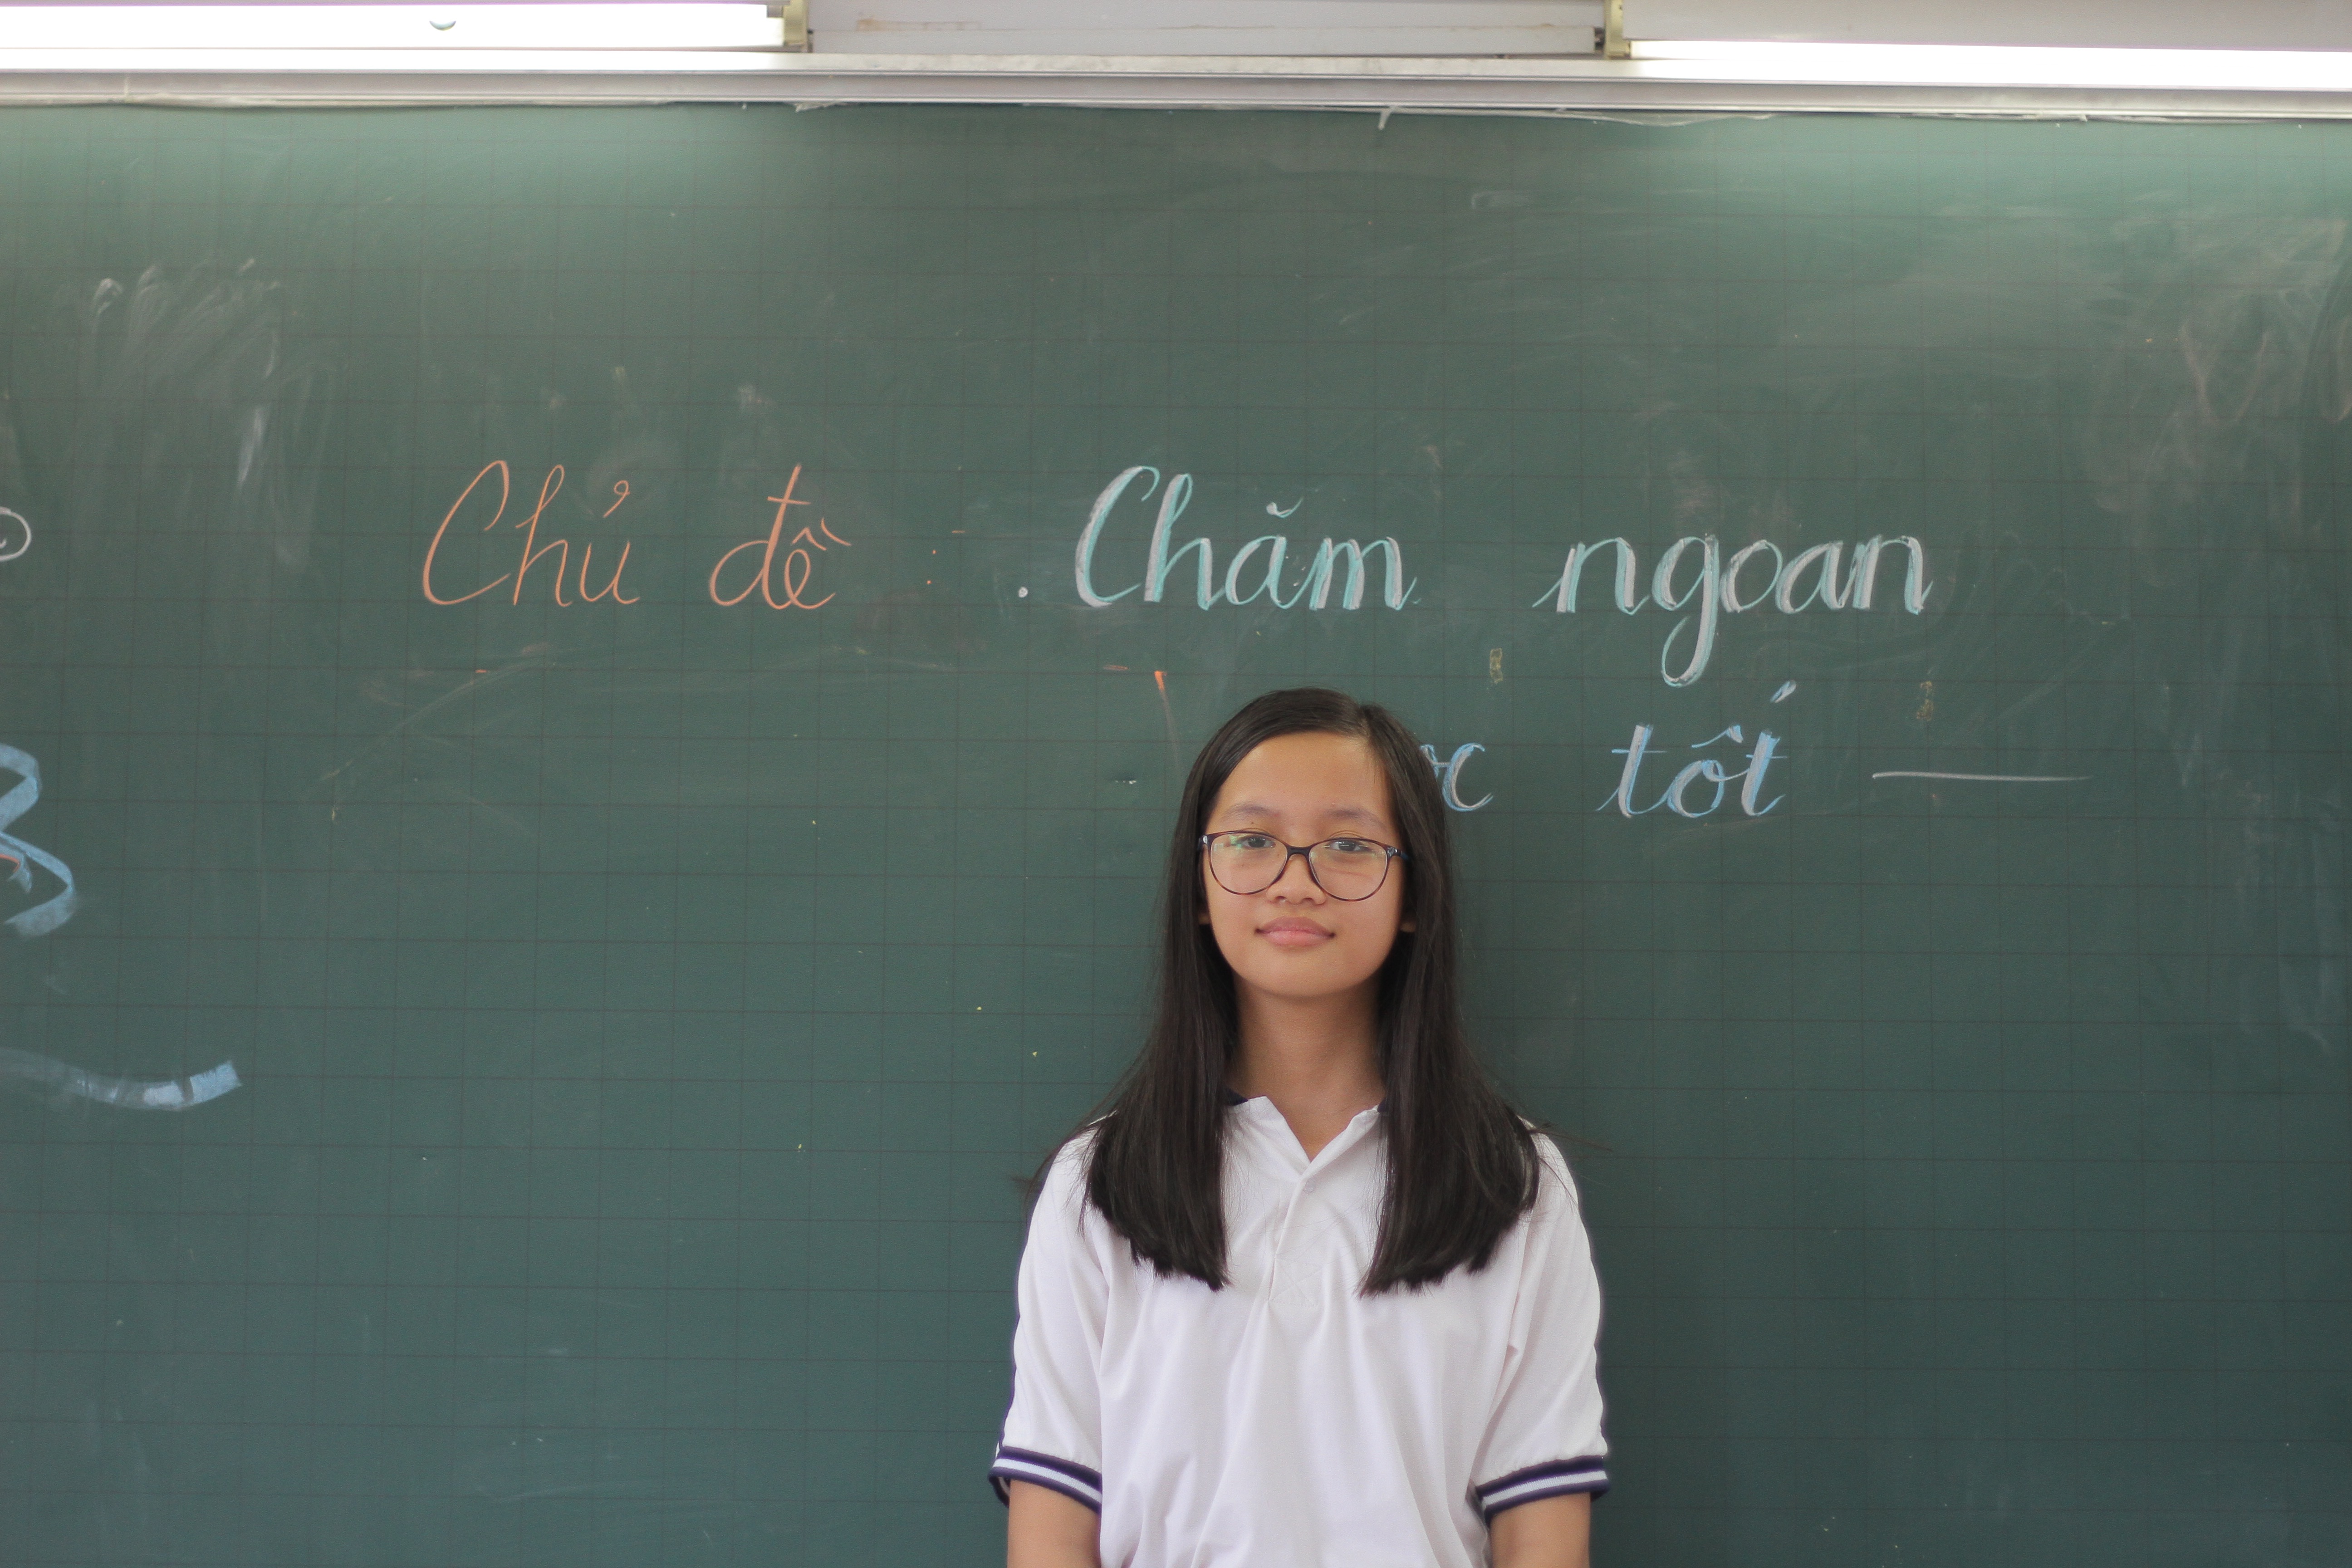 Chủ đề : Chăm ngoan
tốt